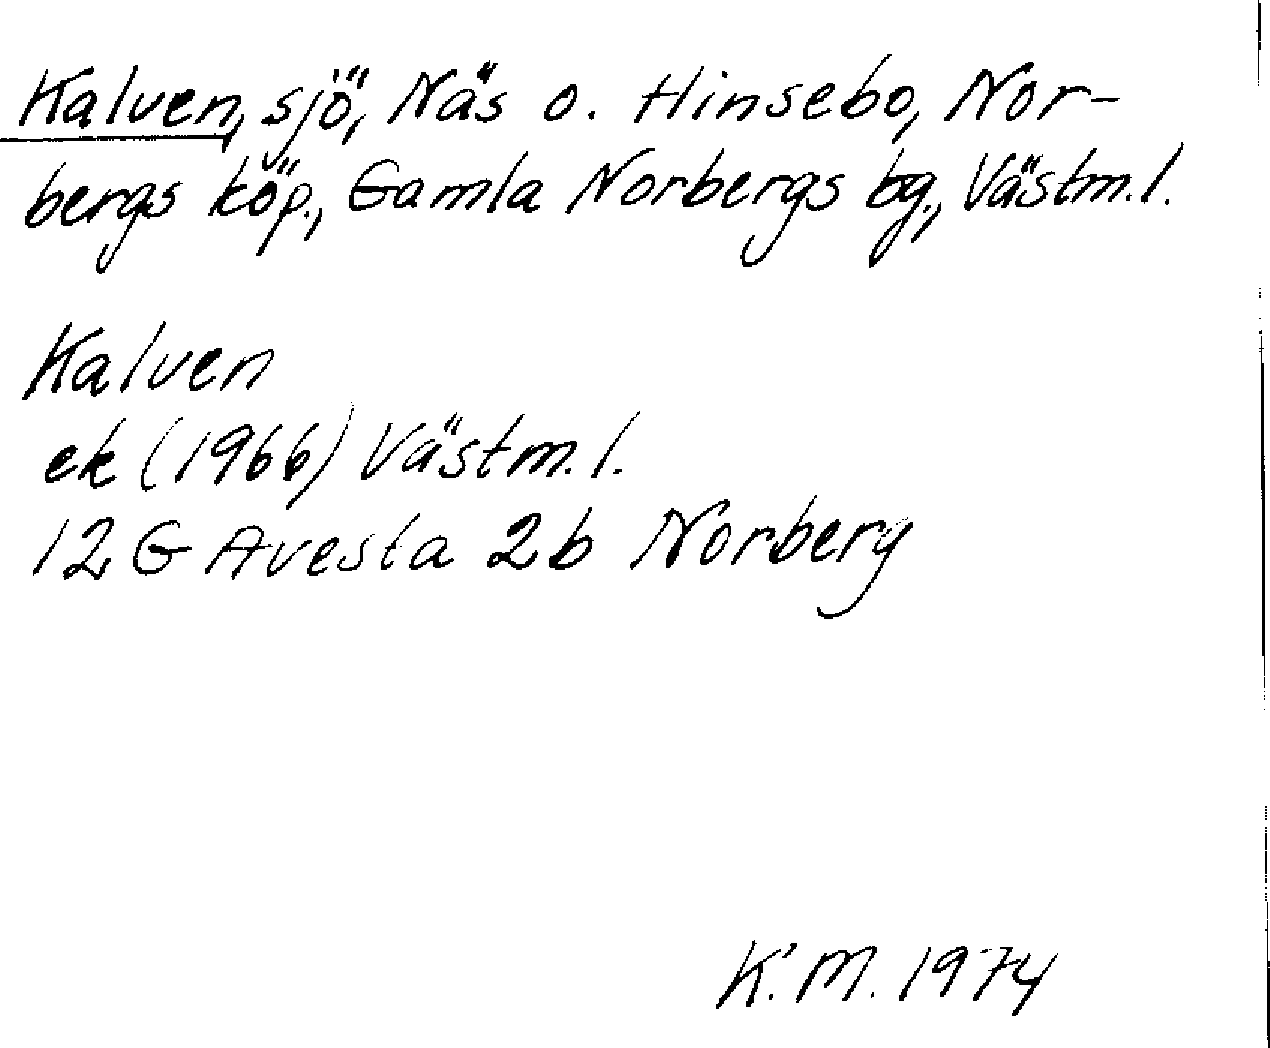 Kalven, sjö, Näs o. Hinsebo, Nor-
bergs köp., Gamla Norbergs bg., Västm.l.
Kalven
ek (1966) Västm.l.
12 G Avesta 2b Norberg
K.M. 1974